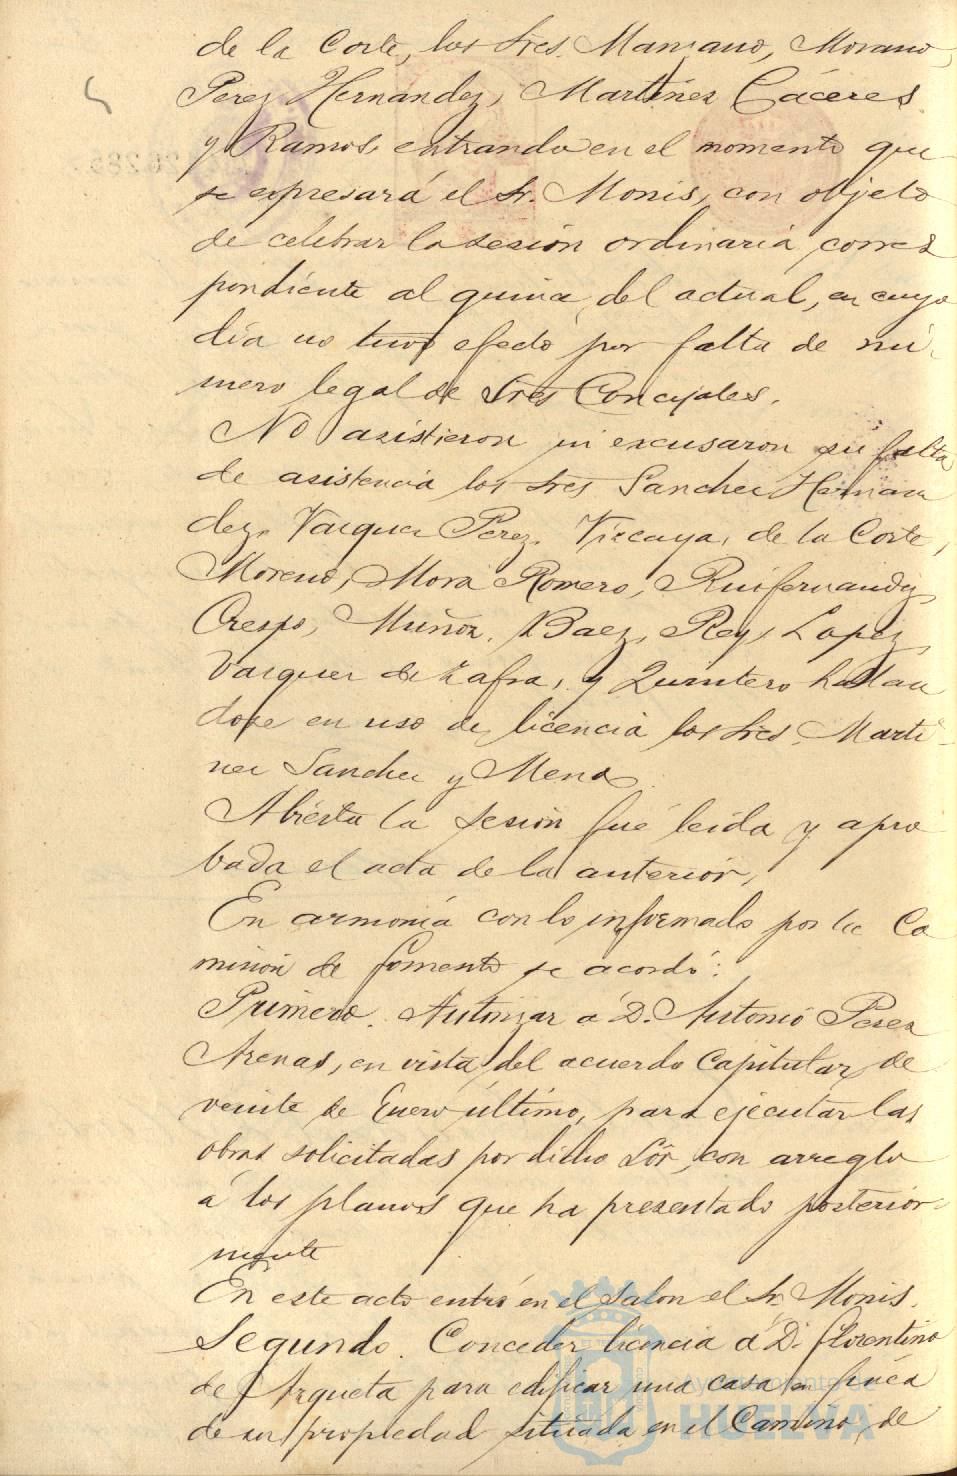 de la Corte, los Sres. Manzano, Morano,
Perez Hernández, Martínez Cáceres
y Ramos, entrando en el momento que
se expresará el Sr. Monis, con objeto
de celebrar la sesión ordinaria corres
pondiente al quince del actual, en cuyo
día no tuvo efecto por falta de nú-
mero legal de Sres Concejales.
No asistieron ni excusaron su falta
de asistencia los Sres Sanchez Hernan
dez, Vazquez Perez, Vizcaya, de la Corte,
Moreno, Mora Romero, Ruifernandez,
Crespo, Muñoz, Baez, Rey, Lopez,
Vazquez de Zafra, y Quintero hallan
dose en uso de licencia los Sres. Marti-
nez Sanchez y Mena
Abierta la sesión fué leida y apro
bada el acta de la anterior,
En armonía con lo informado por la Co
misión de fomento se acordó:
Primero. Autorizar á D. Antonio Perez
Arenas, en vista del acuerdo Capitular de
veinte de Enero último, para ejecutar las
obras solicitadas por dicho Sór, con arreglo
á los planos que ha presentado posterior-
mente
En este acto entró en el Salon el Sr. Monis.
Segundo. Conceder licencia á D. Florentino
de Azqueta para edificar una casa en finca
de su propiedad situada en el Camino de
Ayuntamiento de
HUELVA